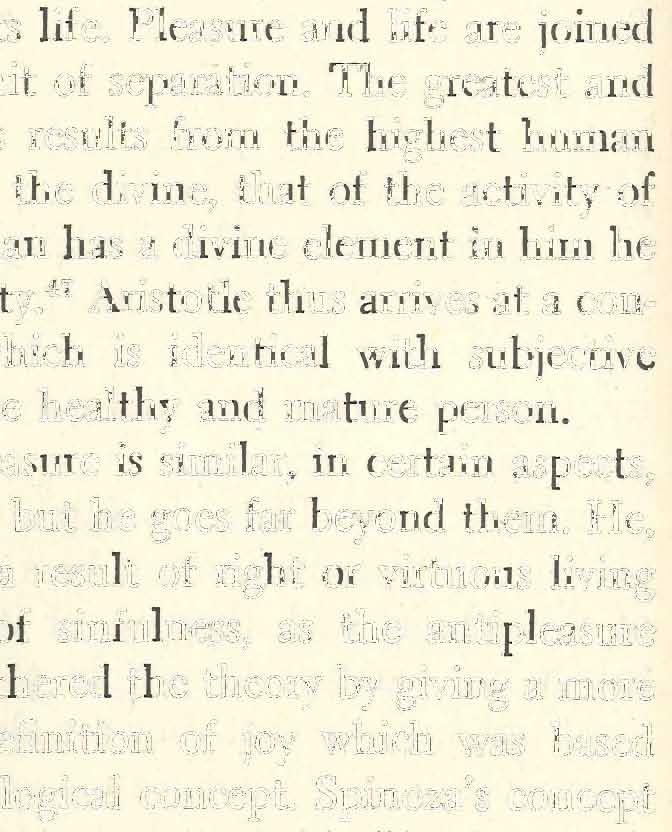 life. Pleasure and life are joined
of separation. The greatest and
results from the highest human
the divine, that of the activity of
an has a divine element in him he
ty.47 Aristotle thus arrives at a con-
hich is identical with subjective
e healthy and mature person.
easure is similar, in certain aspects,
but he goes far beyond them. He,
a result of right or virtuous living
of sinfulness, as the antipleasure
thered the theory by giving a more
efinition of joy which was based
logical concept. Spinoza's concept